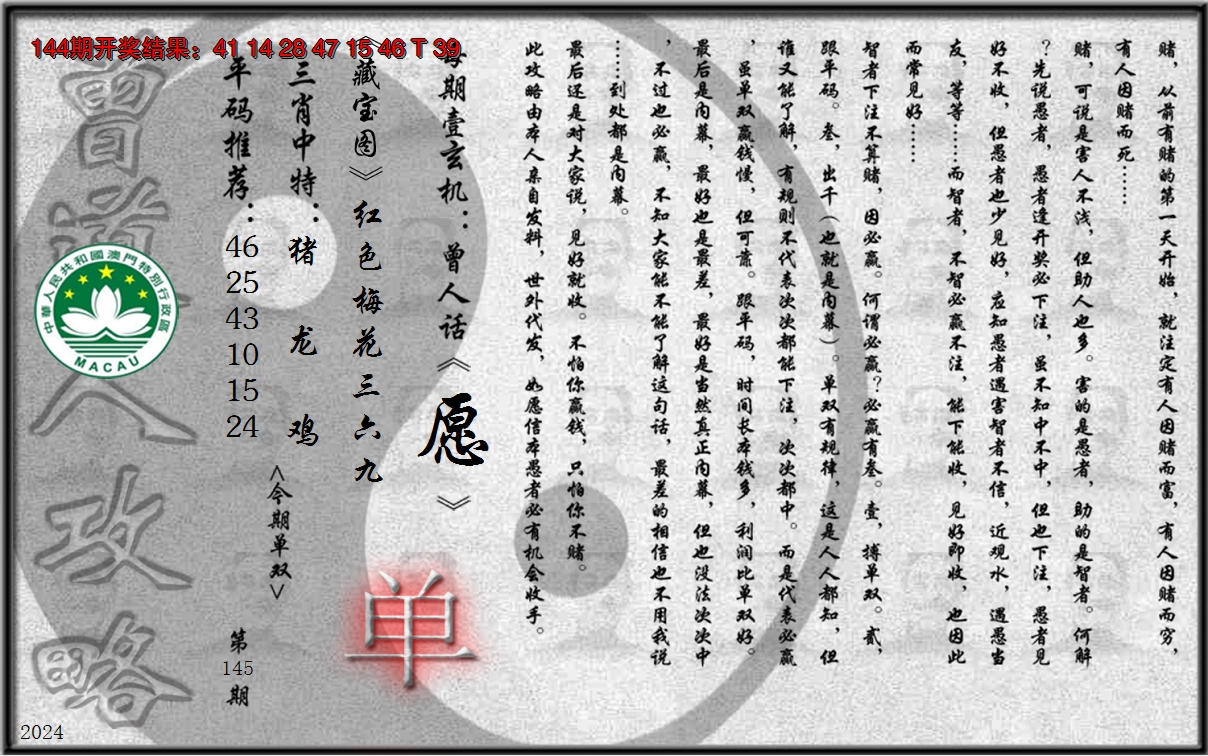 144期开奖结果：41 14 28 47 15 46 T 39
赌，从前有赌的第一天开始，就注定有人因赌而富，有人因赌而穷，
有人因赌而死……
赌，可说是害人不浅，但助人也多。害的是愚者，助的是智者。何解
？先说愚者，愚者逢开奖必下注，虽不知中不中，但也下注，愚者见
好不收，但愚者也少见好，应知愚者遇害智者不信，近观水，遇愚当
友，等等……而智者，不智必赢不注，能下能收，见好即收，也因此
而常见好……
智者下注不算赌，因必赢。何谓必赢？必赢有叁。壹，搏单双。贰，
跟平码。叁，出千（也就是内幕）。单双有规律，这是人人都知，但
谁又能了解，有规则不代表次次都能下注，次次都中。而是代表必赢
，虽单双赢钱慢，但可靠。跟平码，时间长本钱多，利润比单双好。
最后是内幕，最好也是最差，最好是当然真正内幕，但也没法次次中
，不过也必赢，不知大家能不能了解这句话，最差的相信也不用我说
……到处都是内幕。
最后还是对大家说，见好就收。不怕你赢钱，只怕你不赌。
此攻略由本人亲自发料，世外代发，如愿信本愚者必有机会收手。
每期壹玄机：曾人话《愿》
《藏宝图》红色梅花三六九
单
三肖中特：猪 龙 鸡
<今期单双>
平码推荐：46 25 43 10 15 24
第145期
曾道人攻略
中華人民共和國澳門特別行政區
MACAU
2024